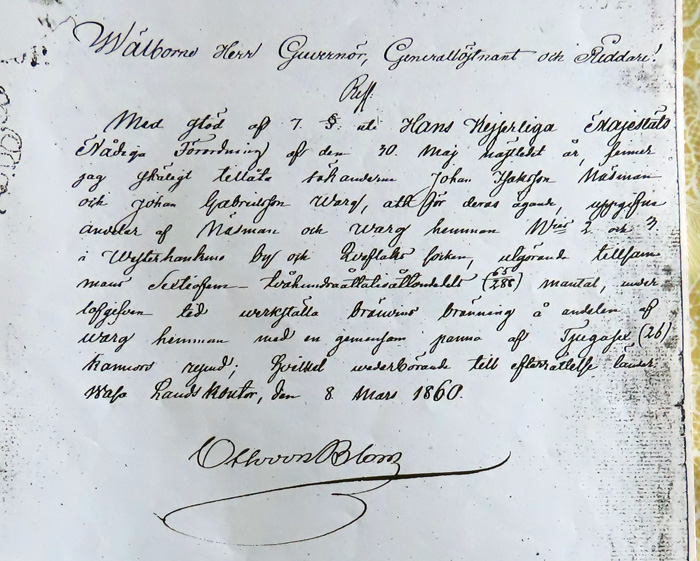 Wälborne Herr Guvernör, Generallöjtnant och Riddare!
Med stöd af 7. §. uti Hans Kejserliga Majestäts
Nådiga Förordning af den 30. Maj sistledet år, finner
jag skäligt tillåta sökanderne Johan Isaksson Näsman
och Johan Gabrielsson Warg, att för deras egande, uppgifne
andelar af Näsman och Warg hemman N:ris 2 och 3.
i Westerhankmo by och Qveflaks socken, utgörande tillsam
mans Sextiofem tvåhundraåttatioåttondels (65/288) mantal, under
lofgifven tid werkställa bränvins bränning å andelen af
Warg hemman med en gemensam panna af Tjugusex (26)
kannors rymd; hvilket wederbörande till efterrättelse länder.
Wasa Landskontor, den 8 Mars 1860.
Otto von Blom